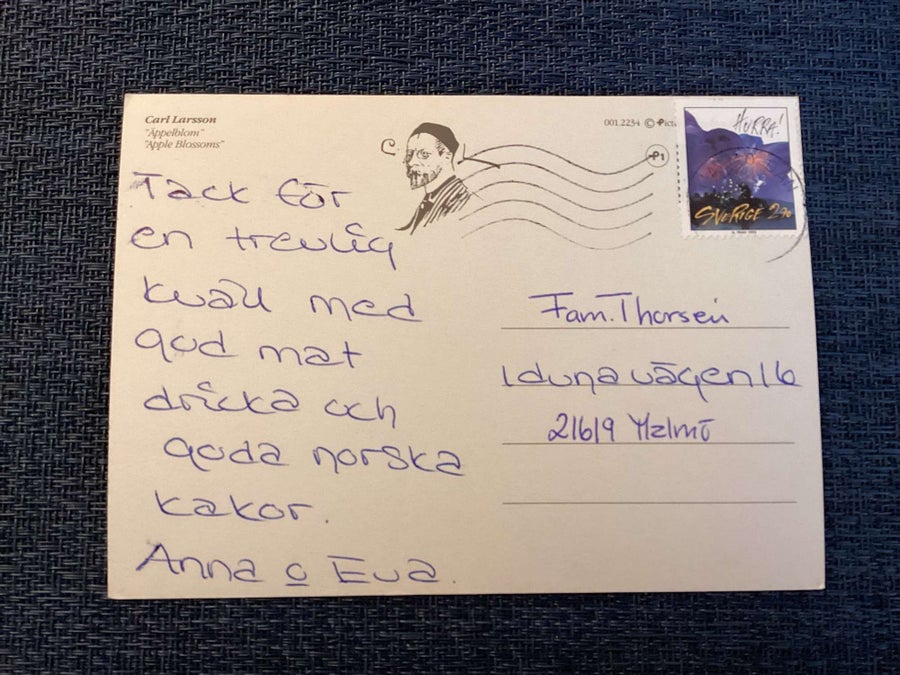 Carl Larsson
"Äppelblom"
"Apple Blossoms"
001.2234 ©
HURRA!
SVERIGE 2.90
Tack för
en trevlig
kväll med
god mat
dricka och
goda norska
kakor.
Anna o Eva.
Fam. Thorsen
Idunavägen 16
21619 Malmö